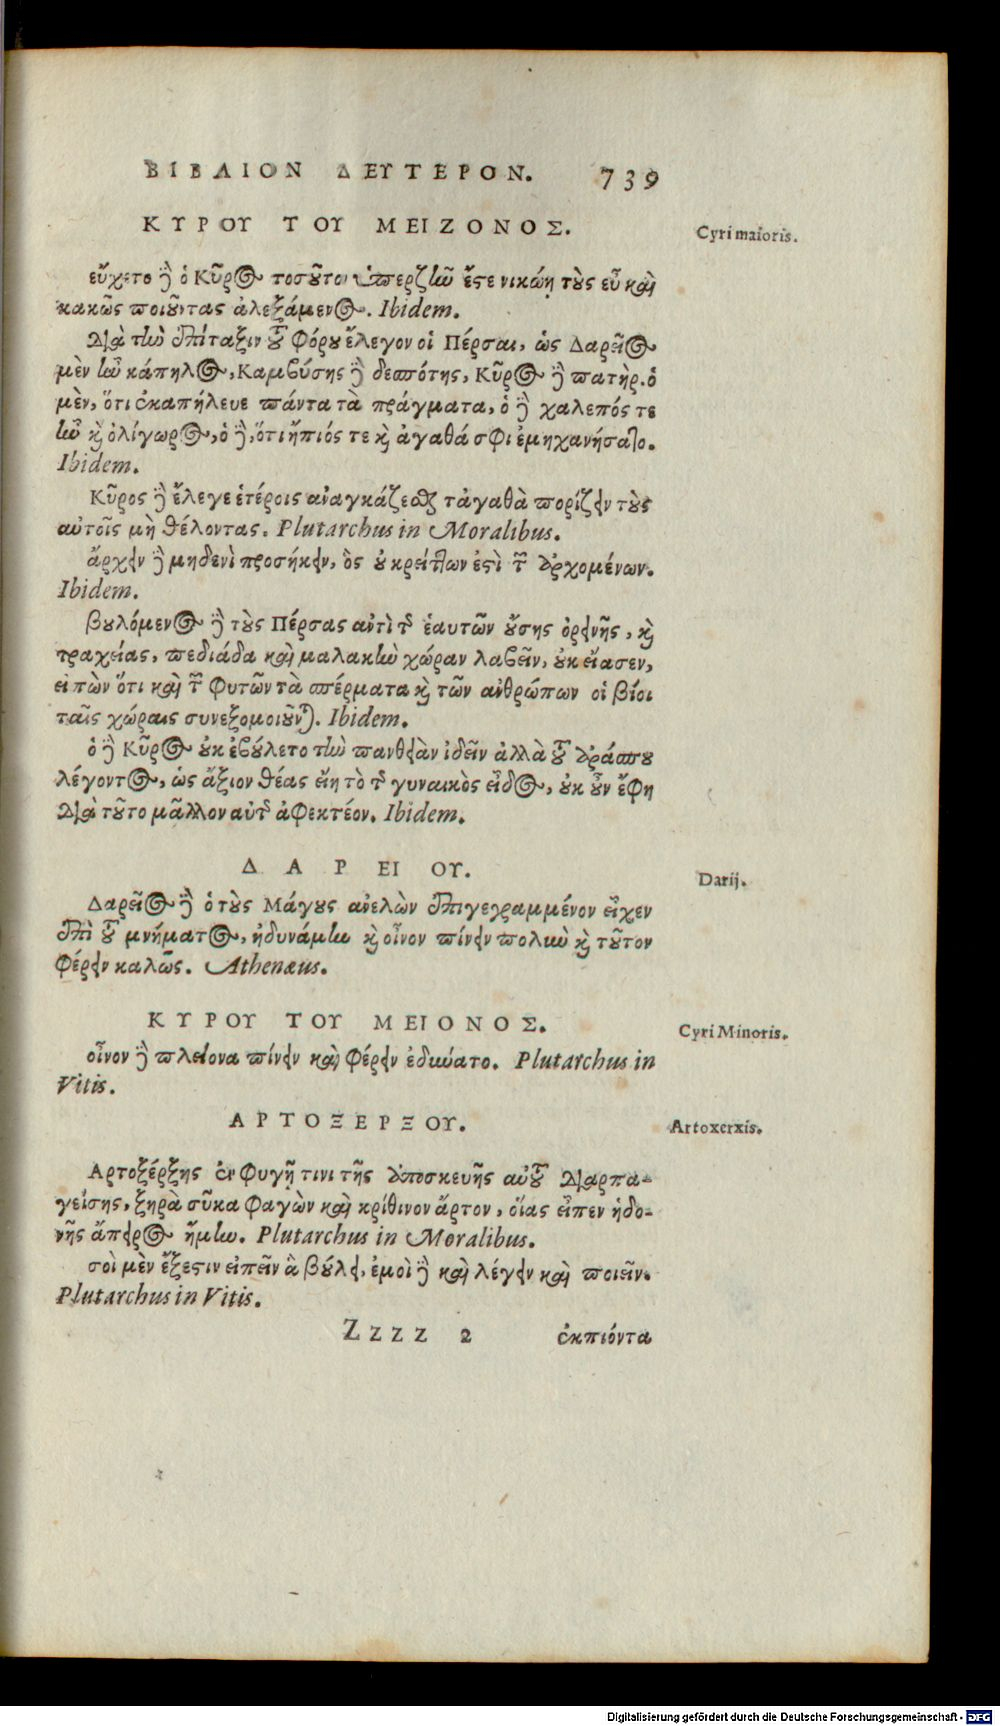 ΒΙΒΛΙΟΝ ΔΕΥΤΕΡΟΝ. 739
ΚΥΡΟΥ ΤΟΥ ΜΕΙΖΟΝΟΣ.
Cyri maioris.
εὔχετο ἢ ὁ Κῦρος τοσοῦτον ὑπερζῆν ἔστε νικῴη τοὺς εὖ καὶ
κακῶς ποιοῦντας ἀλεξάμενος. Ibidem.
Διὰ τὴν ἐπίταξιν τοῦ Φόρου ἔλεγον οἱ Πέρσαι, ὡς Δαρεῖος
μὲν ἦν κάπηλος, Καμβύσης δὲ δεσπότης, Κῦρος δὲ πατὴρ. ὁ
μὲν, ὅτι ἐκαπήλευε πάντα τὰ πράγματα, ὁ δὲ χαλεπός τε
ἦν καὶ ὀλίγωρος, ὁ δὲ, ὅτι ἤπιός τε καὶ ἀγαθά σφι ἐμηχανήσατο.
Ibidem.
Κῦρος δὲ ἔλεγε ἑτέροις ἀναγκάζεσθαι τἀγαθὰ πορίζειν τοὺς
αὑτοῖς μὴ θέλοντας. Plutarchus in Moralibus.
ἄρχειν δὲ μηδενὶ προσήκειν, ὃς οὐ κρείττων ἐστὶ τῶν ἀρχομένων.
Ibidem.
βουλόμενος δὲ τοὺς Πέρσας ἀντὶ τῆς ἑαυτῶν οὔσης ὀρεινῆς, καὶ
τραχείας, πεδιάδα καὶ μαλακὴν χώραν λαβεῖν, οὐκ εἴασεν,
εἰπὼν ὅτι καὶ τῶν Φυτῶν τὰ σπέρματα καὶ τῶν ἀνθρώπων οἱ βίοι
ταῖς χώραις συνεξομοιοῦνται. Ibidem.
ὁ δὲ Κῦρος οὐκ ἐβούλετο τὴν πανθειὰν ἰδεῖν ἀλλὰ τοῦ ἀράσπου
λέγοντος, ὡς ἄξιον θέας εἴη τὸ τῆς γυναικὸς εἶδος, οὐκ οὖν ἔφη
διὰ τοῦτο μᾶλλον αὐτῆς ἀφεκτέον. Ibidem.
ΔΑΡΕΙΟΥ.
Darij.
Δαρεῖος δὲ ὁ τοὺς Μάγους ἀνελὼν ἐπιγεγραμμένον εἶχεν
ἐπὶ τοῦ μνήματος, ἠδυνάμην καὶ οἶνον πίνειν πολὺν καὶ τοῦτον
φέρειν καλῶς. Athenæus.
ΚΥΡΟΥ ΤΟΥ ΜΕΙΟΝΟΣ.
Cyri Minoris.
οἶνον δὲ πλείονα πίνειν καὶ φέρειν ἐδύνατο. Plutarchus in
Vitis.
ΑΡΤΟΞΕΡΞΟΥ.
Artoxerxis.
Αρτοξέρξης ἐν Φυγῇ τινι τῆς ἀποσκευῆς αὐτοῦ διαρπα-
γείσης, ξηρὰ σῦκα φαγὼν καὶ κρίθινον ἄρτον, οἵας εἶπεν ἡδο-
νῆς ἄπειρος ἤμην. Plutarchus in Moralibus.
σοὶ μὲν ἔξεστιν εἰπεῖν ἃ βούλει, ἐμοὶ δὲ καὶ λέγειν καὶ ποιεῖν.
Plutarchus in Vitis.
Zzzz 2 ἐκπιόντα
Digitalisierung gefördert durch die Deutsche Forschungsgemeinschaft - DFG